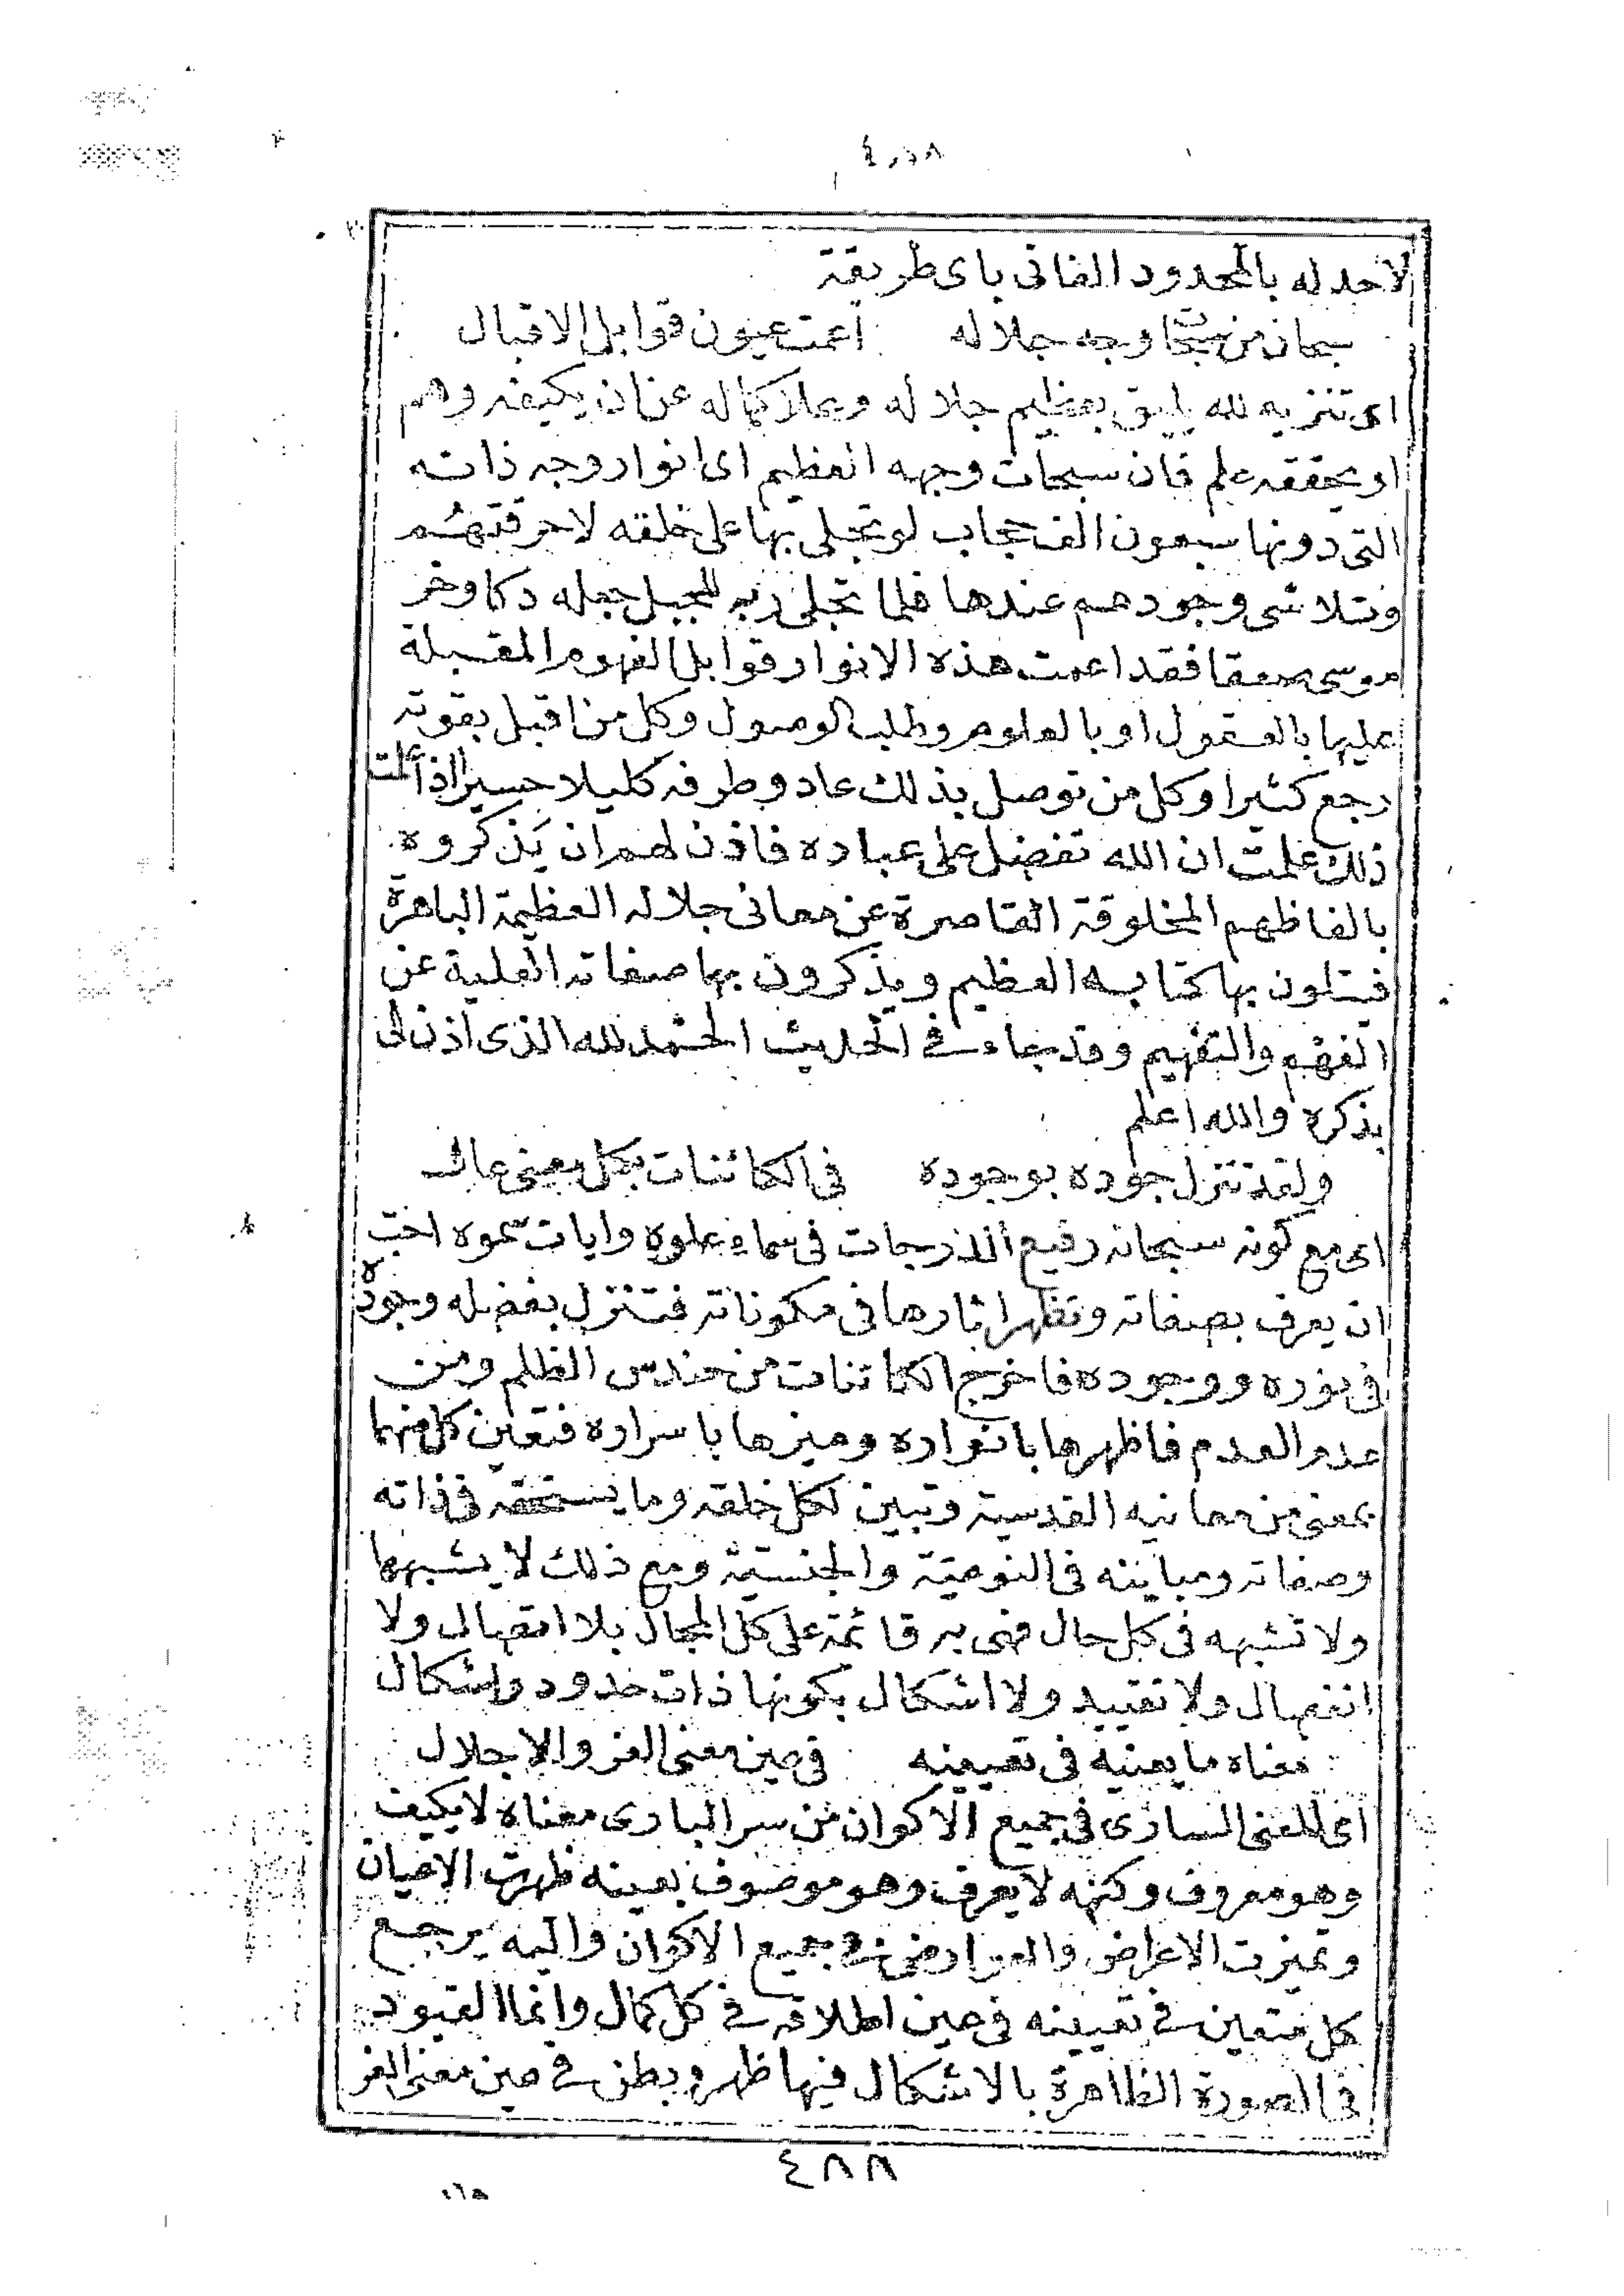 لا حد له بالمحدود الفانى باى طريقة
سبحان من سبحات وجه جلاله اعمت عيون قوابل الاقبال
اى تنزيه لله يليق بعظيم جلاله وعلا كماله عن ان يكيفه وهم
او يحققه علم فان سبحات وجهه العظيم اى انوار وجه ذاته
التى دونها سبعون الف حجاب لو تجلى بها على خلقه لاحرقتهم
وتلاشى وجودهم عندها فلما تجلى ربه للجبل جعله دكا وخر
موسى صعقا فقد اعمت هذه الانوار قوابل الفهوم المقبلة
عليها بالعقول او بالعلوم وطلب الوصول وكل من اقبل بقوته
رجع كثيرا وكل من توصل بذلك عاد وطرفه كليلا حسيرا اذا علمت
ذلك علمت ان الله تفضل على عباده فاذن لهم ان يذكروه
بالفاظهم المخلوقة القاصرة عن معانى جلاله العظيمة الباهرة
فيتلون بها كتابه العظيم ويذكرون بها صفاته العلية عن
الفهم والتفهيم وقد جاء فى الحديث الحمد لله الذى اذن لى
بذكره والله اعلم
ولقد تنزل جوده بوجوده فى الكائنات بكل معنى عال
اى مع كونه سبحانه رفيع الدرجات فى سماء علوه وايات سموه احب
ان يعرف بصفاته وتظهر اثارها فى مكوناته فتنزل بفضله وجوده
فى نوره ووجوده فاخرج الكائنات من حندس الظلم ومن
عدم العدم فاظهرها بانواره وميزها باسراره فتعين كل منهما
بمعنى من معانيه القدسية وتبين لكل خلقه وما يستحقه فى ذاته
وصفاته ومباينه فى النوعية والجنسية ومع ذلك لا يشبهها
ولا تشبهه فى كل حال فهى به قائمة على كل المجال بلا اتصال ولا
انفصال ولا تقييد ولا اشكال بكونها ذات حدود واشكال
معناه ما يعنيه فى تعيينه فى حين معنى العز والاجلال
اى للمعنى السارى فى جميع الاكوان من سر البارى معناه لا يكيف
وهو معروف وكنهه لا يعرف وهو موصوف بعينه ظهرت الاعيان
وتميزت الاعراض والعوارض فى جميع الاكوان واليه يرجع
كل متعين فى تعيينه فى حين اطلاقه فى كل كمال وانما القيود
فى الصورة الظاهرة بالاشكال فيها ظهر وبطن فى حين معنى العز
٤٨٨